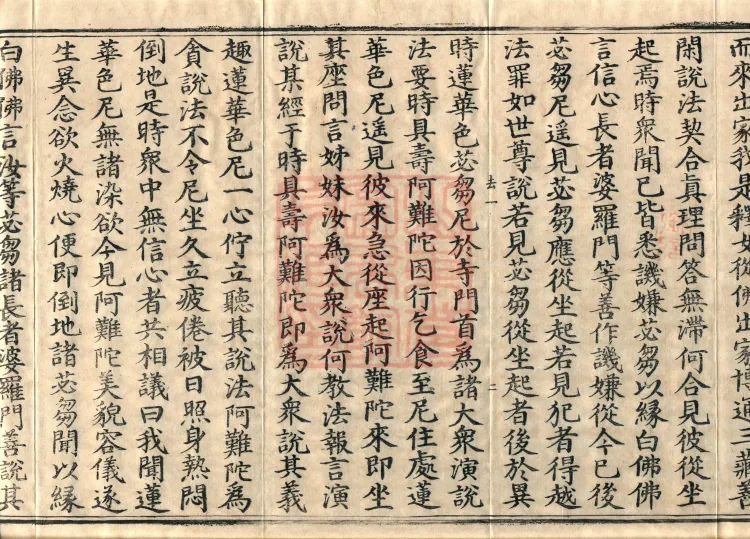 而來出家我是釋女從佛出家博通三藏善
閑說法契合真理問答無滯何合見彼從坐
起焉時衆聞已皆悉譏嫌苾芻以緣白佛佛
言信心長者婆羅門等善作譏嫌從今已後
苾芻尼遙見苾芻應從坐起若見犯者得越
法罪如世尊說若見苾芻從坐起者後於異
去一 二
時蓮華色苾芻尼於寺門首為諸大衆演說
法要時具壽阿難陀因行乞食至尼住處蓮
華色尼遙見彼來急從座起阿難陀來即坐
其座問言姊妹汝為大衆說何教法報言演
說某經于時具壽阿難陀即為大衆說其義
趣蓮華色尼一心佇立聽其說法阿難陀為
貪說法不令尼坐久立疲倦被日照身熱悶
倒地是時衆中無信心者共相議曰我聞蓮
華色尼無諸染欲今見阿難陀美貌容儀遂
生異念欲火燒心便即倒地諸苾芻聞以緣
白佛佛言汝等苾芻諸長者婆羅門善說其